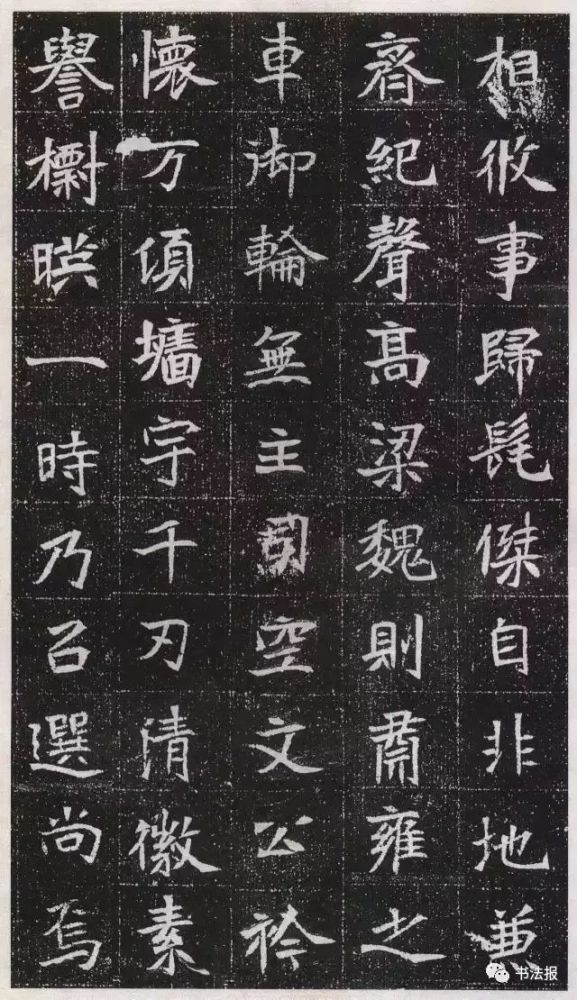 相攸事歸髦傑自非地兼
齊紀聲高梁魏則肅雍之
車御輪無主司空文公衿
懷万頃墻宇千刃清徽素
譽暎一時乃召選尚焉
书法报